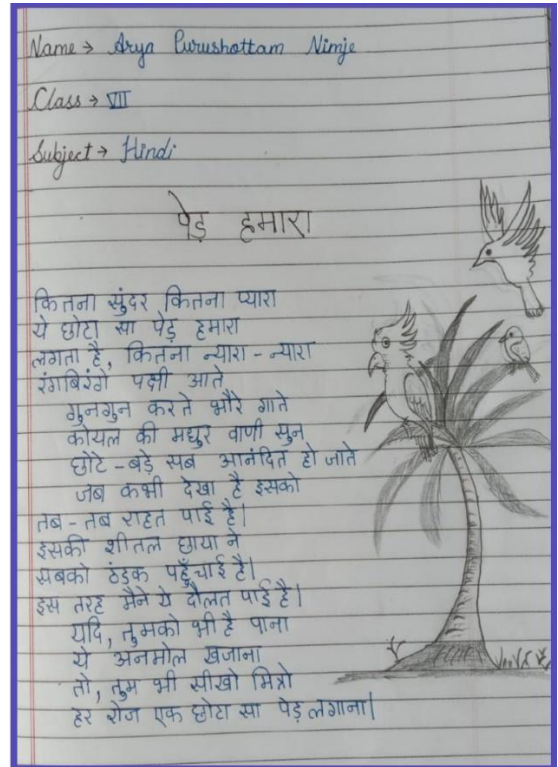 Name → Arya Purushottam Nimje
Class → VII
Subject → Hindi
पेड़ हमारा
कितना सुंदर कितना प्यारा
ये छोटा सा पेड़ हमारा
लगता है, कितना न्यारा - न्यारा
रंगबिरंगे पक्षी आते
गुनगुन करते भौरे गाते
कोयल की मधुर वाणी सुन
छोटे - बड़े सब आनंदित हो जाते
जब कभी देखा है इसको
तब - तब राहत पाई है।
इसकी शीतल छाया ने
सबको ठंडक पहुँचाई है।
इस तरह मैने ये दौलत पाई है।
यदि, तुमको भी है पाना
ये अनमोल खजाना
तो, तुम भी सीखो मित्रो
हर रोज एक छोटा सा पेड़ लगाना।